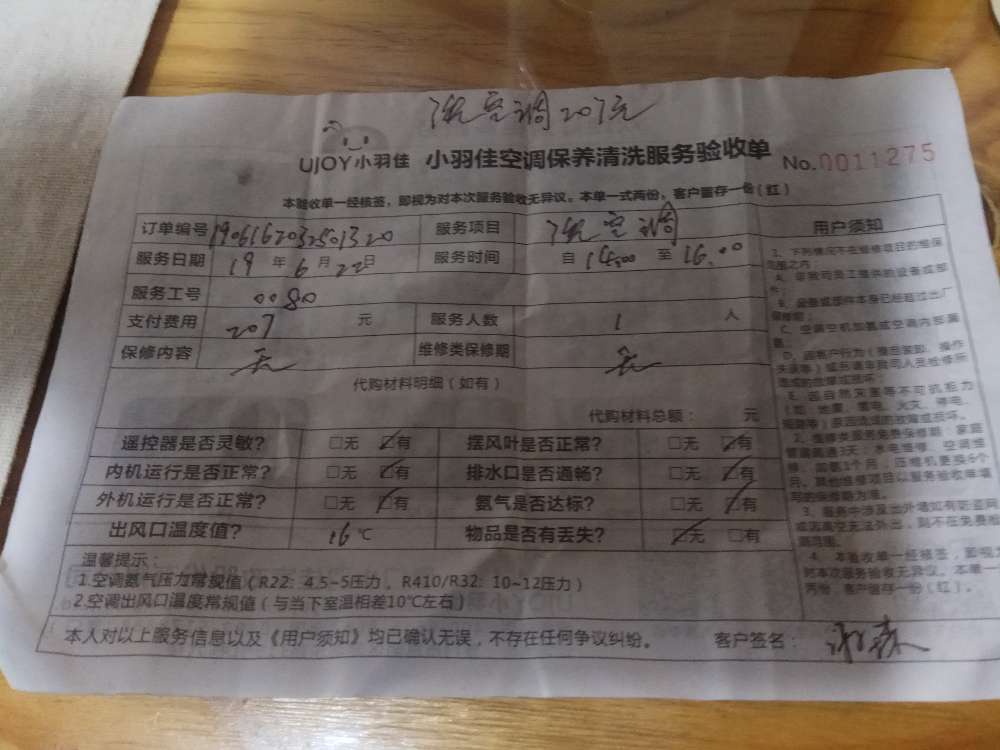 洗空调207元
UJOY小羽佳 小羽佳空调保养清洗服务验收单 No.0011275
本验收单一经核签，即视为对本次服务验收无异议。本单一式两份，客户留存一份(红)
订单编号 1906162032501320 服务项目 洗空调
服务日期 19年6月22日 服务时间 自14:00至16:00
服务工号 0080
支付费用 207元 服务人数 1人
保修内容 无 维修类保修期 无
代购材料明细（如有）
代购材料总额： 元
遥控器是否灵敏? □无 ☑有 摆风叶是否正常? □无 ☑有
内机运行是否正常? □无 ☑有 排水口是否通畅? □无 ☑有
外机运行是否正常? □无 ☑有 氨气是否达标? □无 ☑有
出风口温度值? 16℃ 物品是否有丢失? ☑无 □有
温馨提示：
1.空调氨气压力常规值（R22：4.5~5压力，R410/R32：10~12压力）
2.空调出风口温度常规值（与当下室温相差10℃左右）
本人对以上服务信息以及《用户须知》均已确认无误，不存在任何争议纠纷。 客户签名：
用户须知
1、下列情况不在维修项目的维保
范围之内：
A、非我司员工提供的设备或部
件；
B、设备或部件本身已经超过出厂
保修期；
C、空调空机加氨或空调内部漏
氨；
D、因客户行为（擅自装卸、操作
失误等）或非通车我司人员检修所
造成的故障或损坏；
E、因自然灾害等不可抗拒力
（如：地震、雷电、火灾、停电、
短路等）原因造成的故障或损坏。
2、维修类服务免费保修期：家庭
管道疏通3天；水电维修、空调维
修、加氨1个月，压缩机更换6个
月。其他维修项目以服务验收单填
写的保修期为准。
3、服务中涉及出外墙如有防盗网
或因高空无法外出，则不在免费维
4、本验收单一经核签，即视为
对本次服务验收无异议。本单一式
两份，客户留存一份（红）。